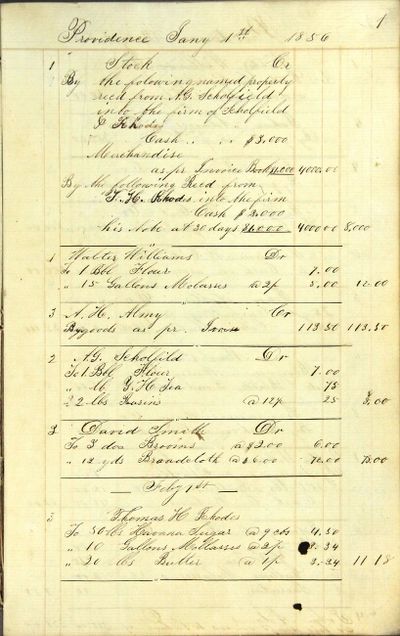 1
Providence Jany 1st 1856
1 Stock Cr
By the folowing named property
recd from A.G. Scholfield
into the firm of Scholfield
& Rhodes
Cash . . . $3,000
Merchandise
as pr Invoice Book $1,000 4000.00
By the following Recd from
T. H. Rhodes into the firm
Cash $2,000
his Note at 30 days 4000 00 8,000
1 Walter Williams Dr
To 1 Bbl Flour 7.00
" 15 Gallons Molasses @ 2/ 5.00 12.00
3 A. H. Almy Cr
By goods as pr. 113.50 113.50
2 A.G. Scholfield Dr
To 1 Bbl Flour 7.00
" lb Y. H Tea 75
" 2 lbs Raisins @ 25 8,00
3 David Smith Dr
To 3 doz Brooms @ $2.00 6.00
" 12 yds Broadcloth @ $6.00 72.00 78.00
— Feby 1st —
3 Thomas H Rhodes
To 50 lbs Havana Sugar @ 9 cts 4.50
" 10 Gallons Mollasses @ 2/ 3.34
" 20 lbs Butter @ 1/ 3.34 11 18